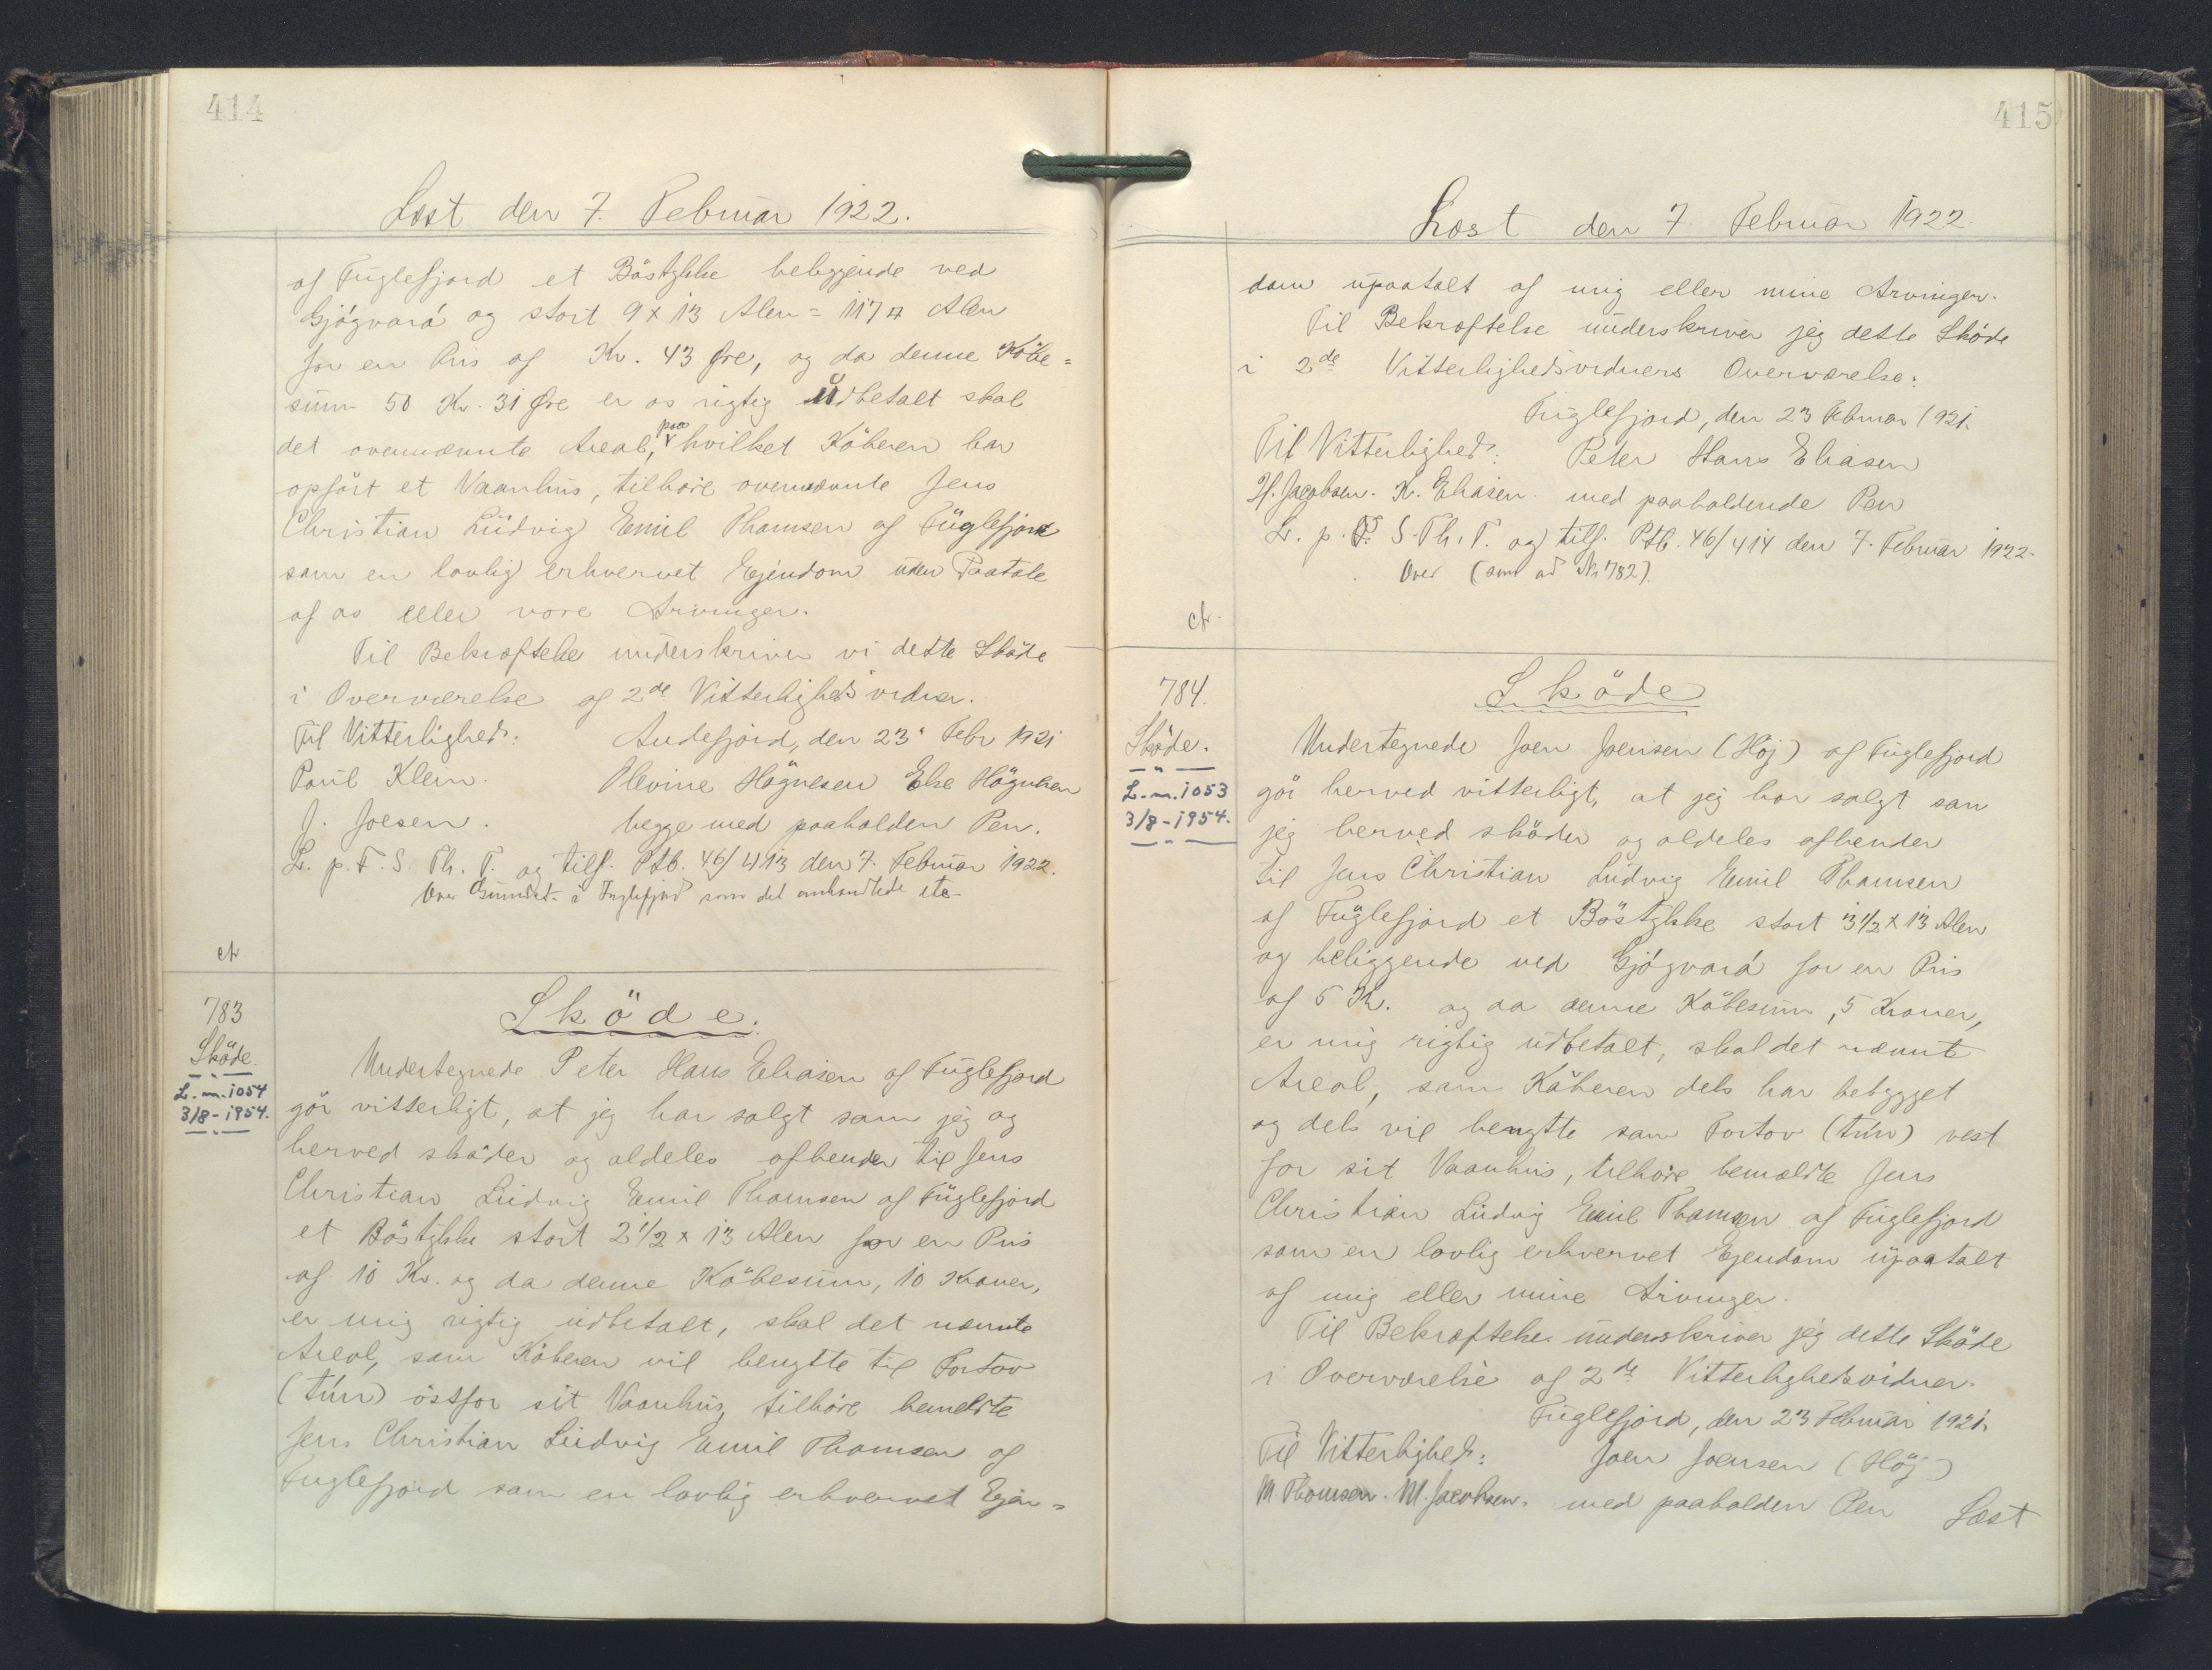 414
Læst den 7. Februar 1922.
af Fuglefjord et Böstykke beliggende ved
Gjógvará og stort 9 x 13 Alen = 117 □ Alen
for en Pris af Kr. 43 Øre, og da denne Köbe=
sum 50 Kr. 31 Øre er os rigtig udbetalt skal
det ovennævnte Areal, paa hvilket Köberen har
opfört et Vaanhus, tilhöre ovennævnte Jens
Christian Ludvig Emil Thomsen af Fuglefjord
som en lovlig erhvervet Ejendom uden Paatale
af os eller vore Arvinger.
Til Bekræftelse underskriver vi dette Sköde
i Overværelse af 2de Vitterligheds vidner.
Til Vitterlighed: Andefjord, den 23' Febr 1921
Poul Klein. Olevine Högnesen Else Högnesen
J. Joesen. begge med paaholden Pen.
L. p. F. S. Th. T. og tilf. Ptb. 46/413 den 7. Februar 1922.
Over Grundst. i Fuglefjord som det omhandlede etc.
ct
783
Sköde.
L.m. 1054
3/8-1954.
Sköde.
Undertegnede Peter Hans Eliasen af Fuglefjord
gör vitterligt, at jeg har solgt som jeg og
herved sköder og aldeles afhender til Jens
Christian Ludvig Emil Thomsen af Fuglefjord
et Böstykke stort 2 1/2 x 13 Alen for en Pris
af 10 Kr. og da denne Köbesum, 10 Kroner,
er mig rigtig udbetalt, skal det nævnte
Areal, som Köberen vil benytte til Fortov
(tún) östfor sit Vaanhus, tilhöre bemeldte
Jens Christian Ludvig Emil Thomsen af
Fuglefjord som en lovlig erhvervet Ejen=
415
Læst den 7. Februar 1922.
dom upaatalt af mig eller mine Arvinger.
Til Bekræftelse underskriver jeg dette Sköde
i 2de Vitterlighedsvidners Overværelse:
Fuglefjord, den 23 Februar 1921.
Til Vitterlighed: Peter Hans Eliasen
H. Jacobsen. K. Eliasen. med paaholdende Pen
L. p. F. S. Th. T. og tilf. Ptb. 46/414 den 7. Februar 1922.
Over (som ad Nr 782).
ct.
784.
Sköde.
L.m. 1053
3/8-1954.
Sköde
Undertegnede Joen Joensen (Höj) af Fuglefjord
gör herved vitterligt, at jeg har solgt som
jeg herved sköder og aldeles afhender
til Jens Christian Ludvig Emil Thomsen
af Fuglefjord et Böstykke stort 3 1/2 x 13 Alen
og beliggende ved Gjógvará for en Pris
af 5 Kr. og da denne Köbesum, 5 Kroner,
er mig rigtig udbetalt, skal det nævnte
Areal, som Köberen dels har bebygget
og dels vil benytte som Fortov (tún) vest
for sit Vaanhus, tilhöre bemældte Jens
Christian Ludvig Emil Thomsen af Fuglefjord
som en lovlig erhvervet Ejendom upaatalt
af mig eller mine Arvinger.
Til Bekræftelse underskriver jeg dette Sköde
i Overværelse af 2de Vitterlighedsvidner.
Fuglefjord, den 23 Februar 1921.
Til Vitterlighed: Joen Joensen (Höj)
M Thomsen. M. Jacobsen. med paaholden Pen
Læst